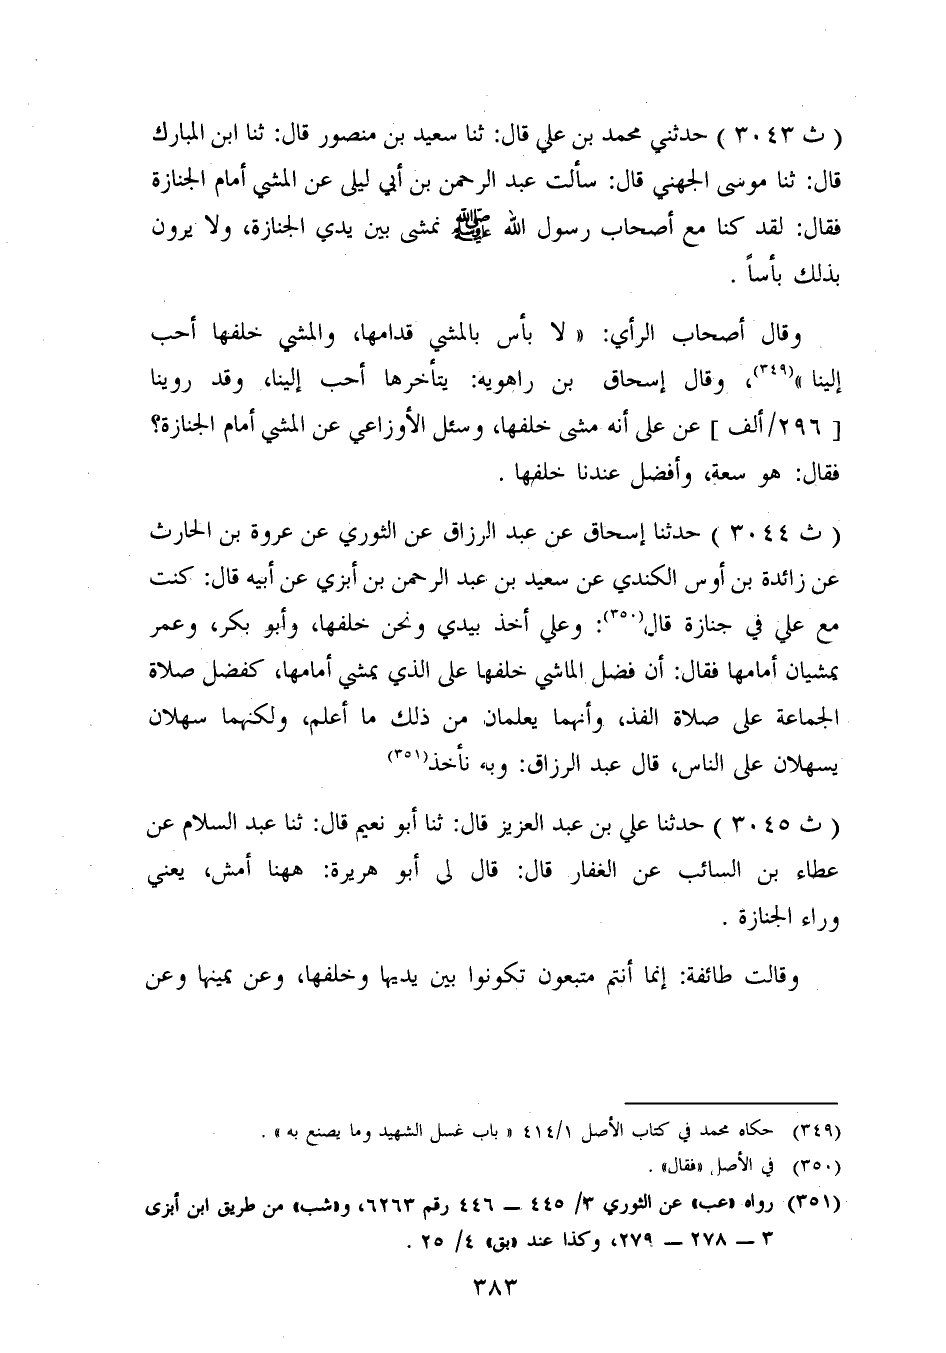 ( ث ٣٠٤٣ ) حدثني محمد بن علي قال: ثنا سعيد بن منصور قال: ثنا ابن المبارك
قال: ثنا موسى الجهني قال: سألت عبد الرحمن بن أبي ليلى عن المشي أمام الجنازة
فقال: لقد كنا مع أصحاب رسول الله ﷺ نمشى بين يدي الجنازة، ولا يرون
بذلك بأساً .
وقال أصحاب الرأي: « لا بأس بالمشي قدامها، والمشي خلفها أحب
إلينا »(٣٤٩)، وقال إسحاق بن راهويه: يتأخرها أحب إلينا، وقد روينا
[ ٢٩٦/ألف ] عن على أنه مشى خلفها، وسئل الأوزاعي عن المشي أمام الجنازة؟
فقال: هو سعة، وأفضل عندنا خلفها .
( ث ٣٠٤٤ ) حدثنا إسحاق عن عبد الرزاق عن الثوري عن عروة بن الحارث
عن زائدة بن أوس الكندي عن سعيد بن عبد الرحمن بن أبزي عن أبيه قال: كنت
مع علي في جنازة قال(٣٥٠): وعلي أخذ بيدي ونحن خلفها، وأبو بكر، وعمر
يمشيان أمامها فقال: أن فضل الماشي خلفها على الذي يمشي أمامها، كفضل صلاة
الجماعة على صلاة الفذ، وأنهما يعلمان من ذلك ما أعلم، ولكنهما سهلان
يسهلان على الناس، قال عبد الرزاق: وبه نأخذ(٣٥١)
( ث ٣٠٤٥ ) حدثنا علي بن عبد العزيز قال: ثنا أبو نعيم قال: ثنا عبد السلام عن
عطاء بن السائب عن الغفار قال: قال لى أبو هريرة: ههنا أمش، يعني
وراء الجنازة .
وقالت طائفة: إنما أنتم متبعون تكونوا بين يديها وخلفها، وعن يمينها وعن
(٣٤٩) حكاه محمد في كتاب الأصل ٤١٤/١ « باب غسل الشهيد وما يصنع به » .
(٣٥٠) في الأصل «فقال» .
(٣٥١) رواه «عب» عن الثوري ٣/ ٤٤٥ ــ ٤٤٦ رقم ٦٢٦٣، و«شب» من طريق ابن أبزى
٣ ــ ٢٧٨ ــ ٢٧٩، وكذا عند «بق» ٤/ ٢٥ .
٣٨٣